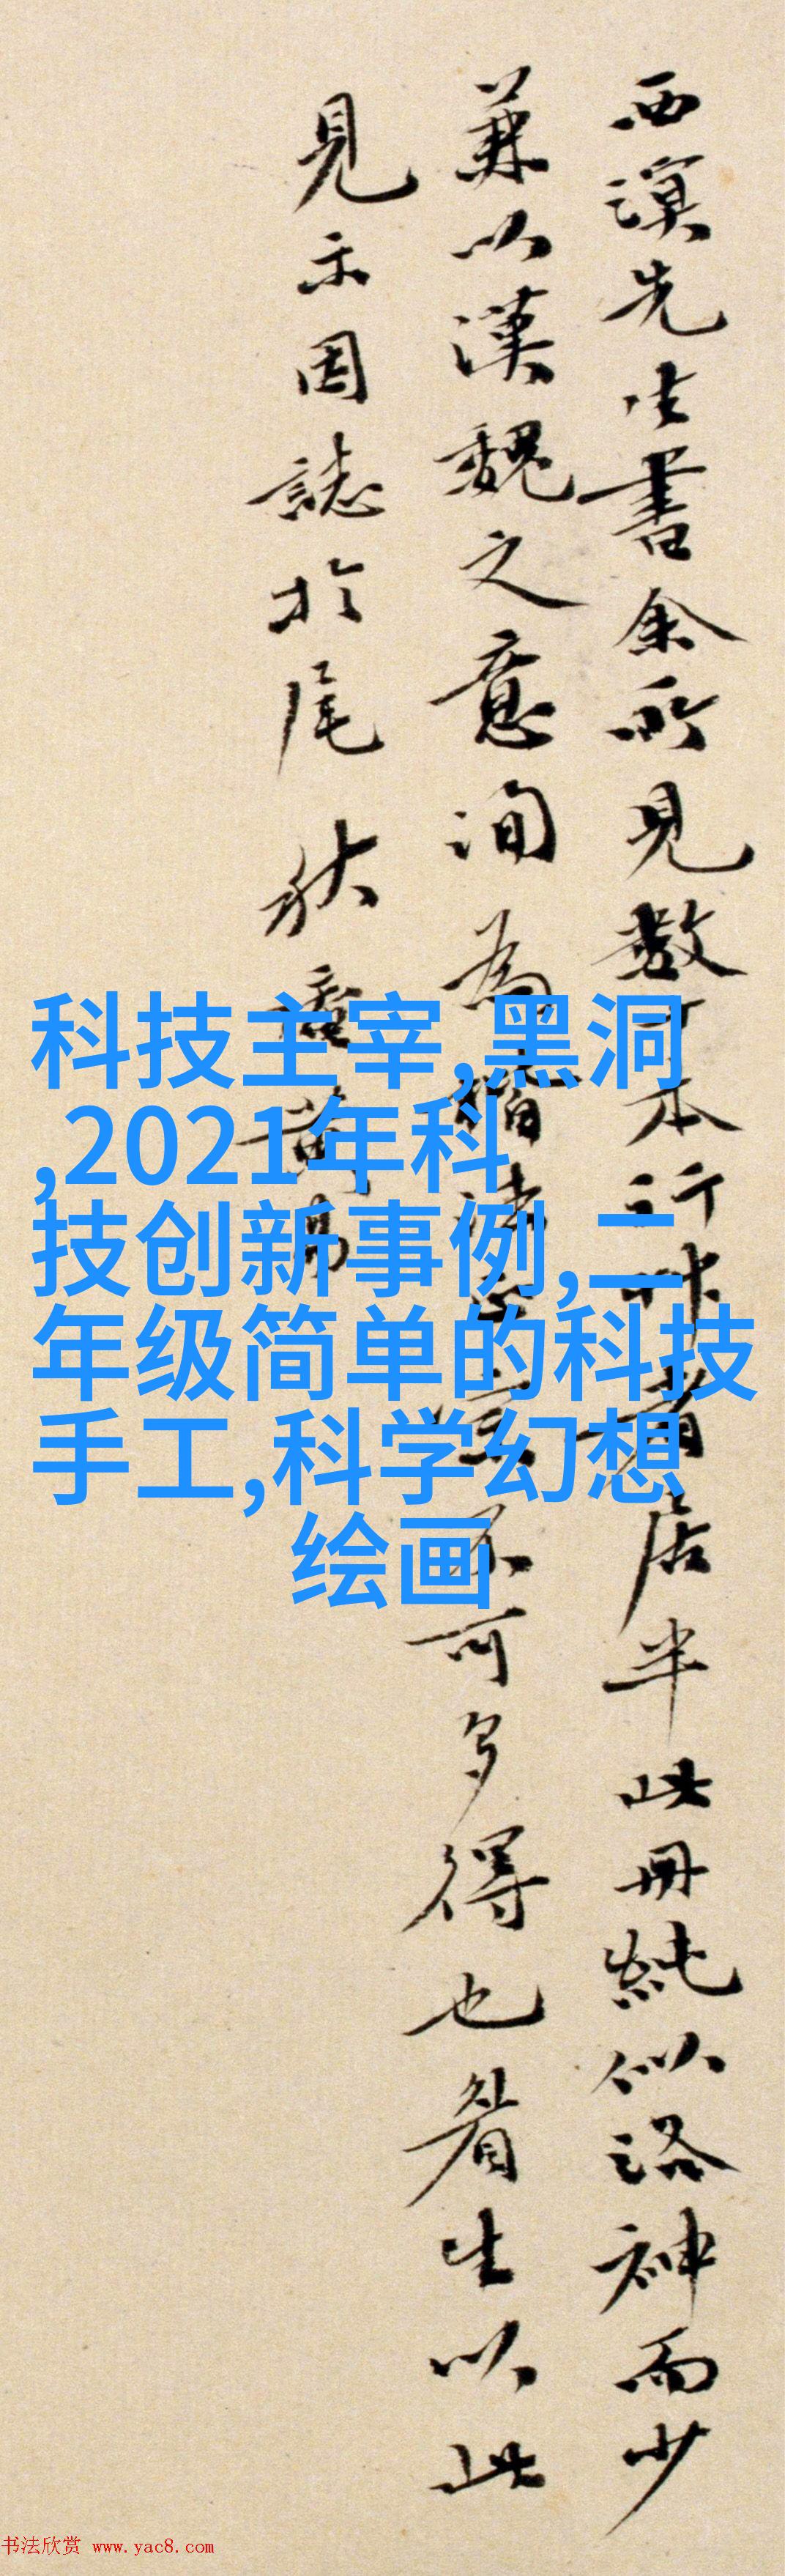 西溟先生書余所見數十本行楷者居半此冊純似洛神而少
兼以漢魏之意洵為楷法正宗不可多得也眷生以此
見示因誌於尾 秋盦黃易
科技主宰,黑洞
,2021年科
技创新事例,二
年级简单的科技
手工,科学幻想
绘画
书法欣赏 www.yac8.com